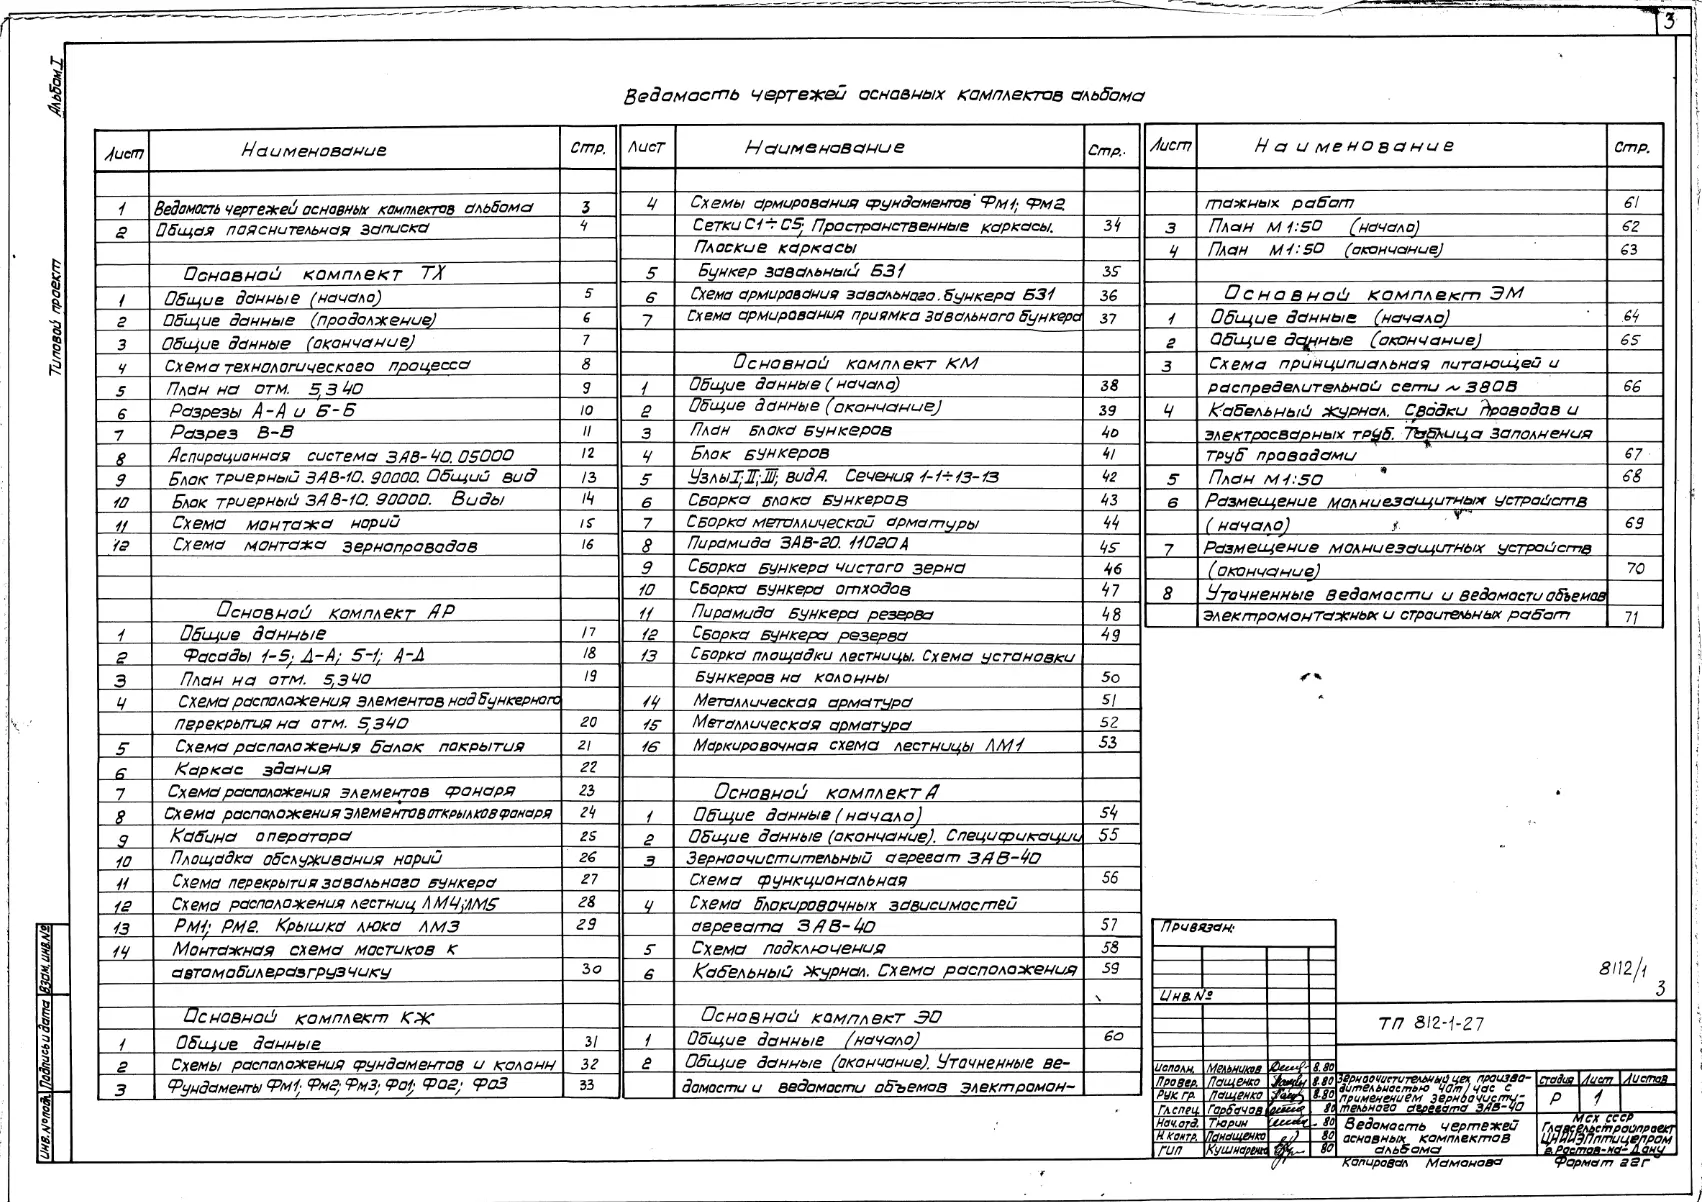 3
Альбом I
Типовой проект
Ведомость чертежей основных комплектов альбома
Лист Наименование Стр.
1 Ведомость чертежей основных комплектов альбома 3
2 Общая пояснительная записка 4
Основной комплект ТХ
1 Общие данные (начало) 5
2 Общие данные (продолжение) 6
3 Общие данные (окончание) 7
4 Схема технологического процесса 8
5 План на отм. 5,340 9
6 Разрезы А-А и Б-Б 10
7 Разрез В-В 11
8 Аспирационная система ЗАВ-40.05000 12
9 Блок триерный ЗАВ-10.90000. Общий вид 13
10 Блок триерный ЗАВ-10.90000. Виды 14
11 Схема монтажа норий 15
12 Схема монтажа зернопроводов 16
Основной комплект АР
1 Общие данные 17
2 Фасады 1-5; Д-А; 5-1; А-Д 18
3 План на отм. 5,340 19
4 Схема расположения элементов надбункерного
перекрытия на отм. 5,340 20
5 Схема расположения балок покрытия 21
6 Каркас здания 22
7 Схема расположения элементов фонаря 23
8 Схема расположения элементов открылков фонаря 24
9 Кабина оператора 25
10 Площадка обслуживания норий 26
11 Схема перекрытия завального бункера 27
12 Схема расположения лестниц ЛМ4; ЛМ5 28
13 РМ1; РМ2. Крышка люка ЛМ3 29
14 Монтажная схема мостиков к
автомобилеразгрузчику 30
Основной комплект КЖ
1 Общие данные 31
2 Схемы расположения фундаментов и колонн 32
3 Фундаменты Фм1; Фм2; Фм3; Фо1; Фо2; Фо3 33
Лист Наименование Стр.
4 Схемы армирования фундаментов Фм1; Фм2
Сетки С1÷С5; Пространственные каркасы. 34
Плоские каркасы
5 Бункер завальный БЗ1 35
6 Схема армирования завального бункера БЗ1 36
7 Схема армирования приямка завального бункера 37
Основной комплект КМ
1 Общие данные (начало) 38
2 Общие данные (окончание) 39
3 План блока бункеров 40
4 Блок бункеров 41
5 Узлы I; II; III; вид А. Сечения 1-1÷13-13 42
6 Сборка блока бункеров 43
7 Сборка металлической арматуры 44
8 Пирамида ЗАВ-20.11020А 45
9 Сборка бункера чистого зерна 46
10 Сборка бункера отходов 47
11 Пирамида бункера резерва 48
12 Сборка бункера резерва 49
13 Сборка площадки лестницы. Схема установки
бункеров на колонны 50
14 Металлическая арматура 51
15 Металлическая арматура 52
16 Маркировочная схема лестницы ЛМ1 53
Основной комплект А
1 Общие данные (начало) 54
2 Общие данные (окончание). Спецификации 55
3 Зерноочистительный агрегат ЗАВ-40
Схема функциональная 56
4 Схема блокировочных зависимостей
агрегата ЗАВ-40 57
5 Схема подключения 58
6 Кабельный журнал. Схема расположения 59
Основной комплект ЭО
1 Общие данные (начало) 60
2 Общие данные (окончание). Уточненные ве-
домости и ведомости объемов электромон-
Лист Наименование Стр.
тажных работ 61
3 План М 1:50 (начало) 62
4 План М 1:50 (окончание) 63
Основной комплект ЭМ
1 Общие данные (начало) 64
2 Общие данные (окончание) 65
3 Схема принципиальная питающей и
распределительной сети ~ 380В 66
4 Кабельный журнал. Сводки проводов и
электросварных труб. Таблица заполнения
труб проводами 67
5 План М 1:50 68
6 Размещение молниезащитных устройств
(начало) 69
7 Размещение молниезащитных устройств
(окончание) 70
8 Уточненные ведомости и ведомости объемов
электромонтажных и строительных работ 71
Привязан:
Инв.№
8112/1
3
ТП 812-1-27
Исполн. Мельников 8.80
Провер. Пащенко 8.80
Рук.гр. Пащенко 8.80
Гл.спец. Горбачов 80
Нач.отд. Тюрин 80
Н.контр. Панащенко 80
ГИП Кушнаренко 80
Зерноочистительный цех произво-
дительностью 40т/час с
применением зерноочисти-
тельного агрегата ЗАВ-40
Стадия Лист Листов
Р 1
Ведомость чертежей
основных комплектов
альбома
МСХ СССР
Главсельстройпроект
ЦНИИЭПптицепром
г.Ростов-на-Дону
Копировал Мамонова Формат 22г
Инв.№подл. Подпись и дата Взам.инв.№